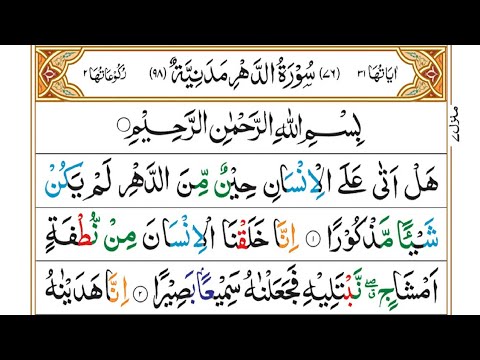 اٰیاتها ٣١ (٧٦) سُوْرَةُ الدَّهْرِ مَدَنِيَّةٌ (٩٨) رُكُوْعَاتُهَا ٢
منزل ٧
بِسْمِ اللهِ الرَّحْمٰنِ الرَّحِيْمِ
هَلْ اَتٰى عَلَى الْاِنْسَانِ حِيْنٌ مِّنَ الدَّهْرِ لَمْ يَكُنْ
شَيْـًٔا مَّذْكُوْرًا ١ اِنَّا خَلَقْنَا الْاِنْسَانَ مِنْ نُّطْفَةٍ
اَمْشَاجٍ ۖ نَّبْتَلِيْهِ فَجَعَلْنٰهُ سَمِيْعًۢا بَصِيْرًا ٢ اِنَّا هَدَيْنٰهُ